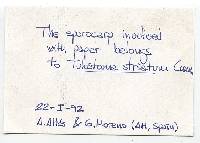 The sporocarp involved
with paper belongs
to Tulostoma striatum Cunn.
22-I-92
& G. Moreno (AH, Spain)